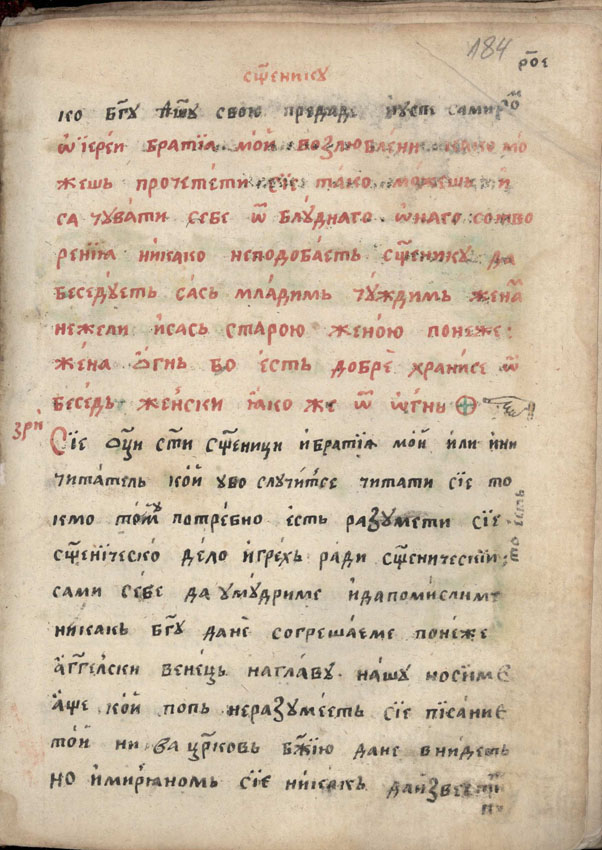 184
р҃ое
сщ҃енику
ко бг҃у дш҃у свою предаде и усте сами
ѿ їереи братїа мои возлюблени како мо
жешь прочетети сїе тако можешь и
са чувати себе ѿ блуднаго ѡнаго сотво
ренїѧ никако неподобаеть сщ҃енику да
беседуеть сась младимь чуждимь жена
нежели исась старою женою понеже:
жена ѻгнь бо есть добрѐ хранисе ѿ
беседь женски ꙗко же ѿ ѡгнь
зри
Сїе ѻц҃и ст҃и сщ҃еници и братїѧ мои или ини
читатель кои убо случитсе читати сїе то
кмо тому потребно есть разумети сїе
то есть
сщ҃енїческо дело и грехь ради сщ҃еническїи:
сами себе да умудриме и да помислиме
никакь бг҃у дане согрешаеме понеже
агг҃елски венець наглаву нашу носиме
аще кои попь неразумееть сїе пїсание
той ни ва цр҃ковь бж҃їю дане внидеть
но имирѧномь сїе никакь да